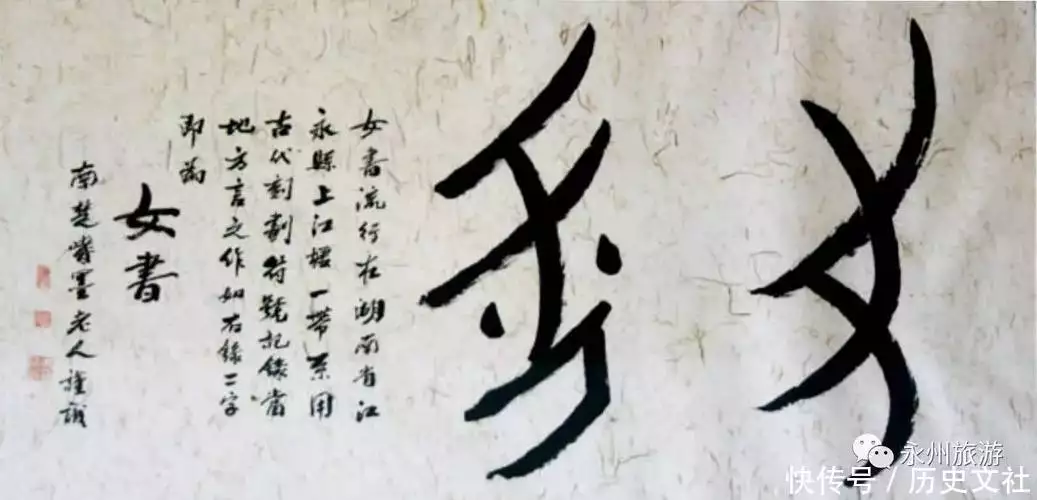 女書流行在湖南省江
永縣上江一帶系用
古代刻劃符號記錄當
地方言之作如右錄二字
即為
女書
南楚墨老人謹識
永州旅游
快传号 / 历史文社